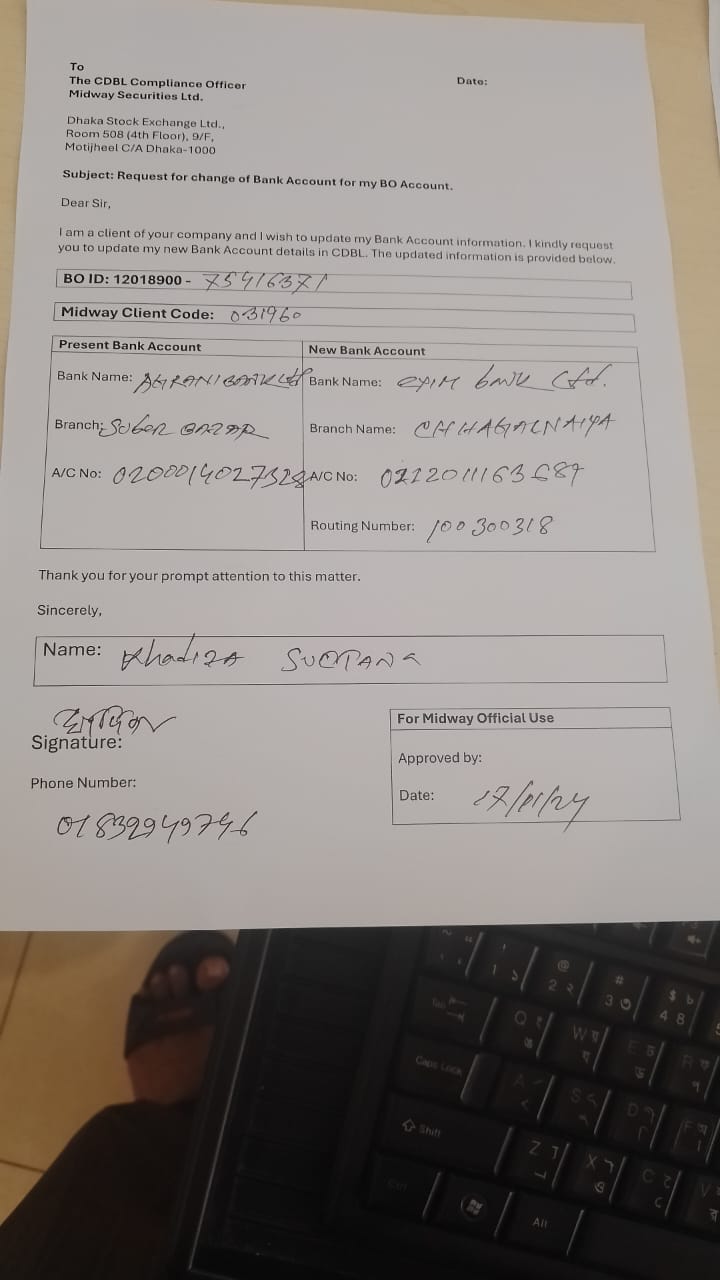 To
The CDBL Compliance Officer
Midway Securities Ltd.
Date:
Dhaka Stock Exchange Ltd.,
Room 508 (4th Floor), 9/F,
Motijheel C/A Dhaka-1000
Subject: Request for change of Bank Account for my BO Account.
Dear Sir,
I am a client of your company and I wish to update my Bank Account information. I kindly request
you to update my new Bank Account details in CDBL. The updated information is provided below.
BO ID: 12018900 - 75416371
Midway Client Code: 031960
Present Bank Account
New Bank Account
Bank Name: AGRANI BANK Ltd
Bank Name: EXIM bank Ltd.
Branch:
Branch Name: CHHAGALNAIYA
A/C No: 0200014027328
A/C No: 0212011163687
Routing Number: 100300318
Thank you for your prompt attention to this matter.
Sincerely,
Name: Khadiza SULTANA
Signature:
Phone Number:
01832949746
For Midway Official Use
Approved by:
Date: 17/11/24
Tab
Caps Lock
Shift
Ctrl
Alt